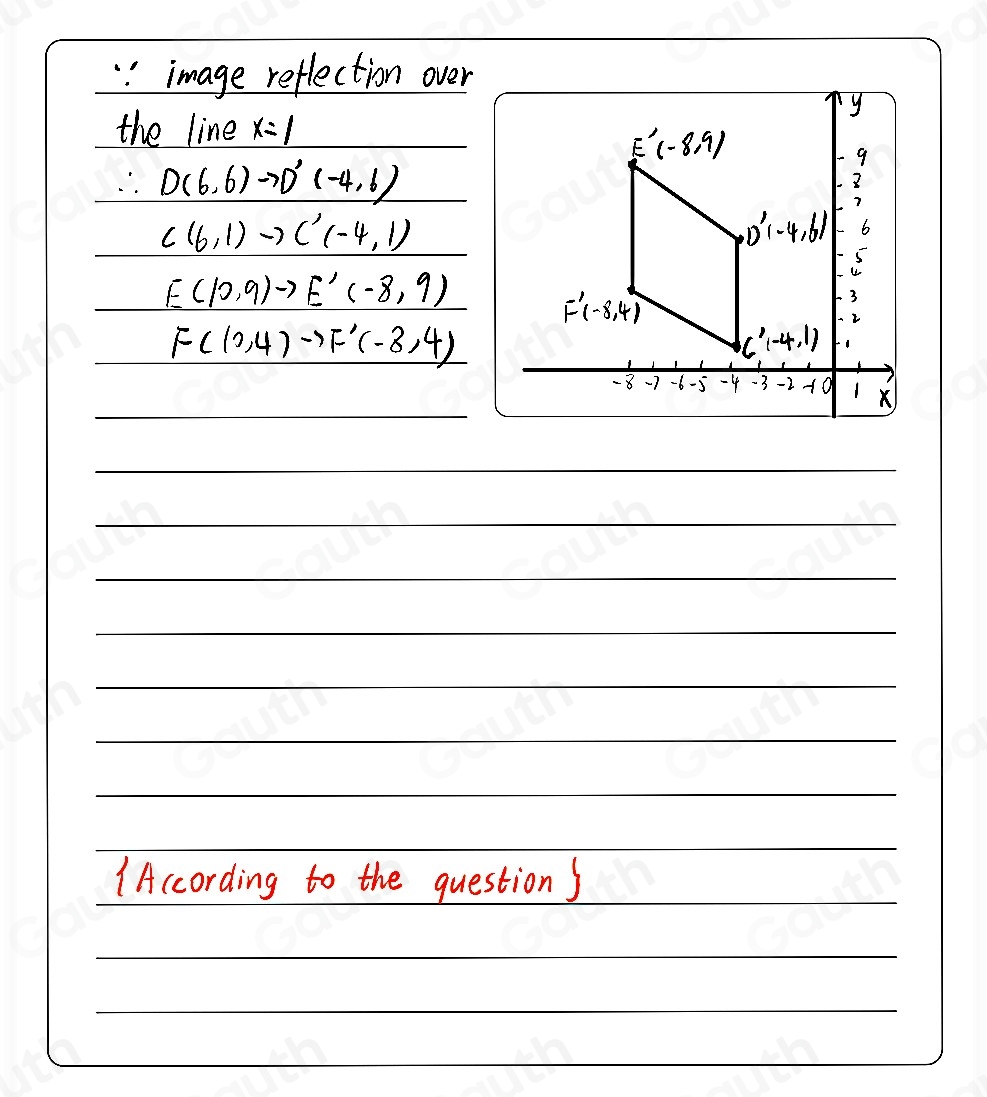 ∵ image reflection over
the line x=1
∴ D(6,6)→D'(-4,6)
C(6,1)→C'(-4,1)
E(10,9)→E'(-8,9)
F(10,4)→F'(-8,4)
y
E'(-8,9)
9
8
7
D'(-4,6) 6
5
4
F'(-8,4) 3
2
C'(-4,1) 1
-8 -7 -6 -5 -4 -3 -2 -1 0 1 X
{According to the question}
Gauth